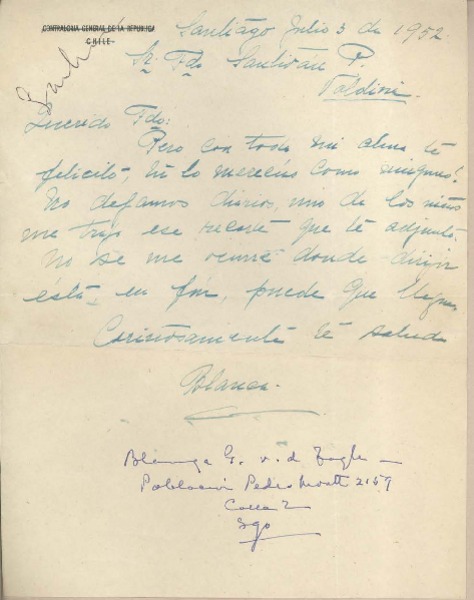 CONTRALORIA GENERAL DE LA REPUBLICA
CHILE
Santiago Julio 3 de 1952
Sr. Fdo Santiván P.
Querido Fdo:
Pero con toda mi alma te
felicito, tú lo mereces como ninguno!
No dejamos diarios, uno de los niños
me trajo ese recorte que te adjunto.
No se me ocurre donde dirijir
ésta, en fin, puede que llegue
Cariñosamente te saluda
Blanca.
G. v. d Tagle
Población Pedro Montt 2159
Calle 2
Sgo